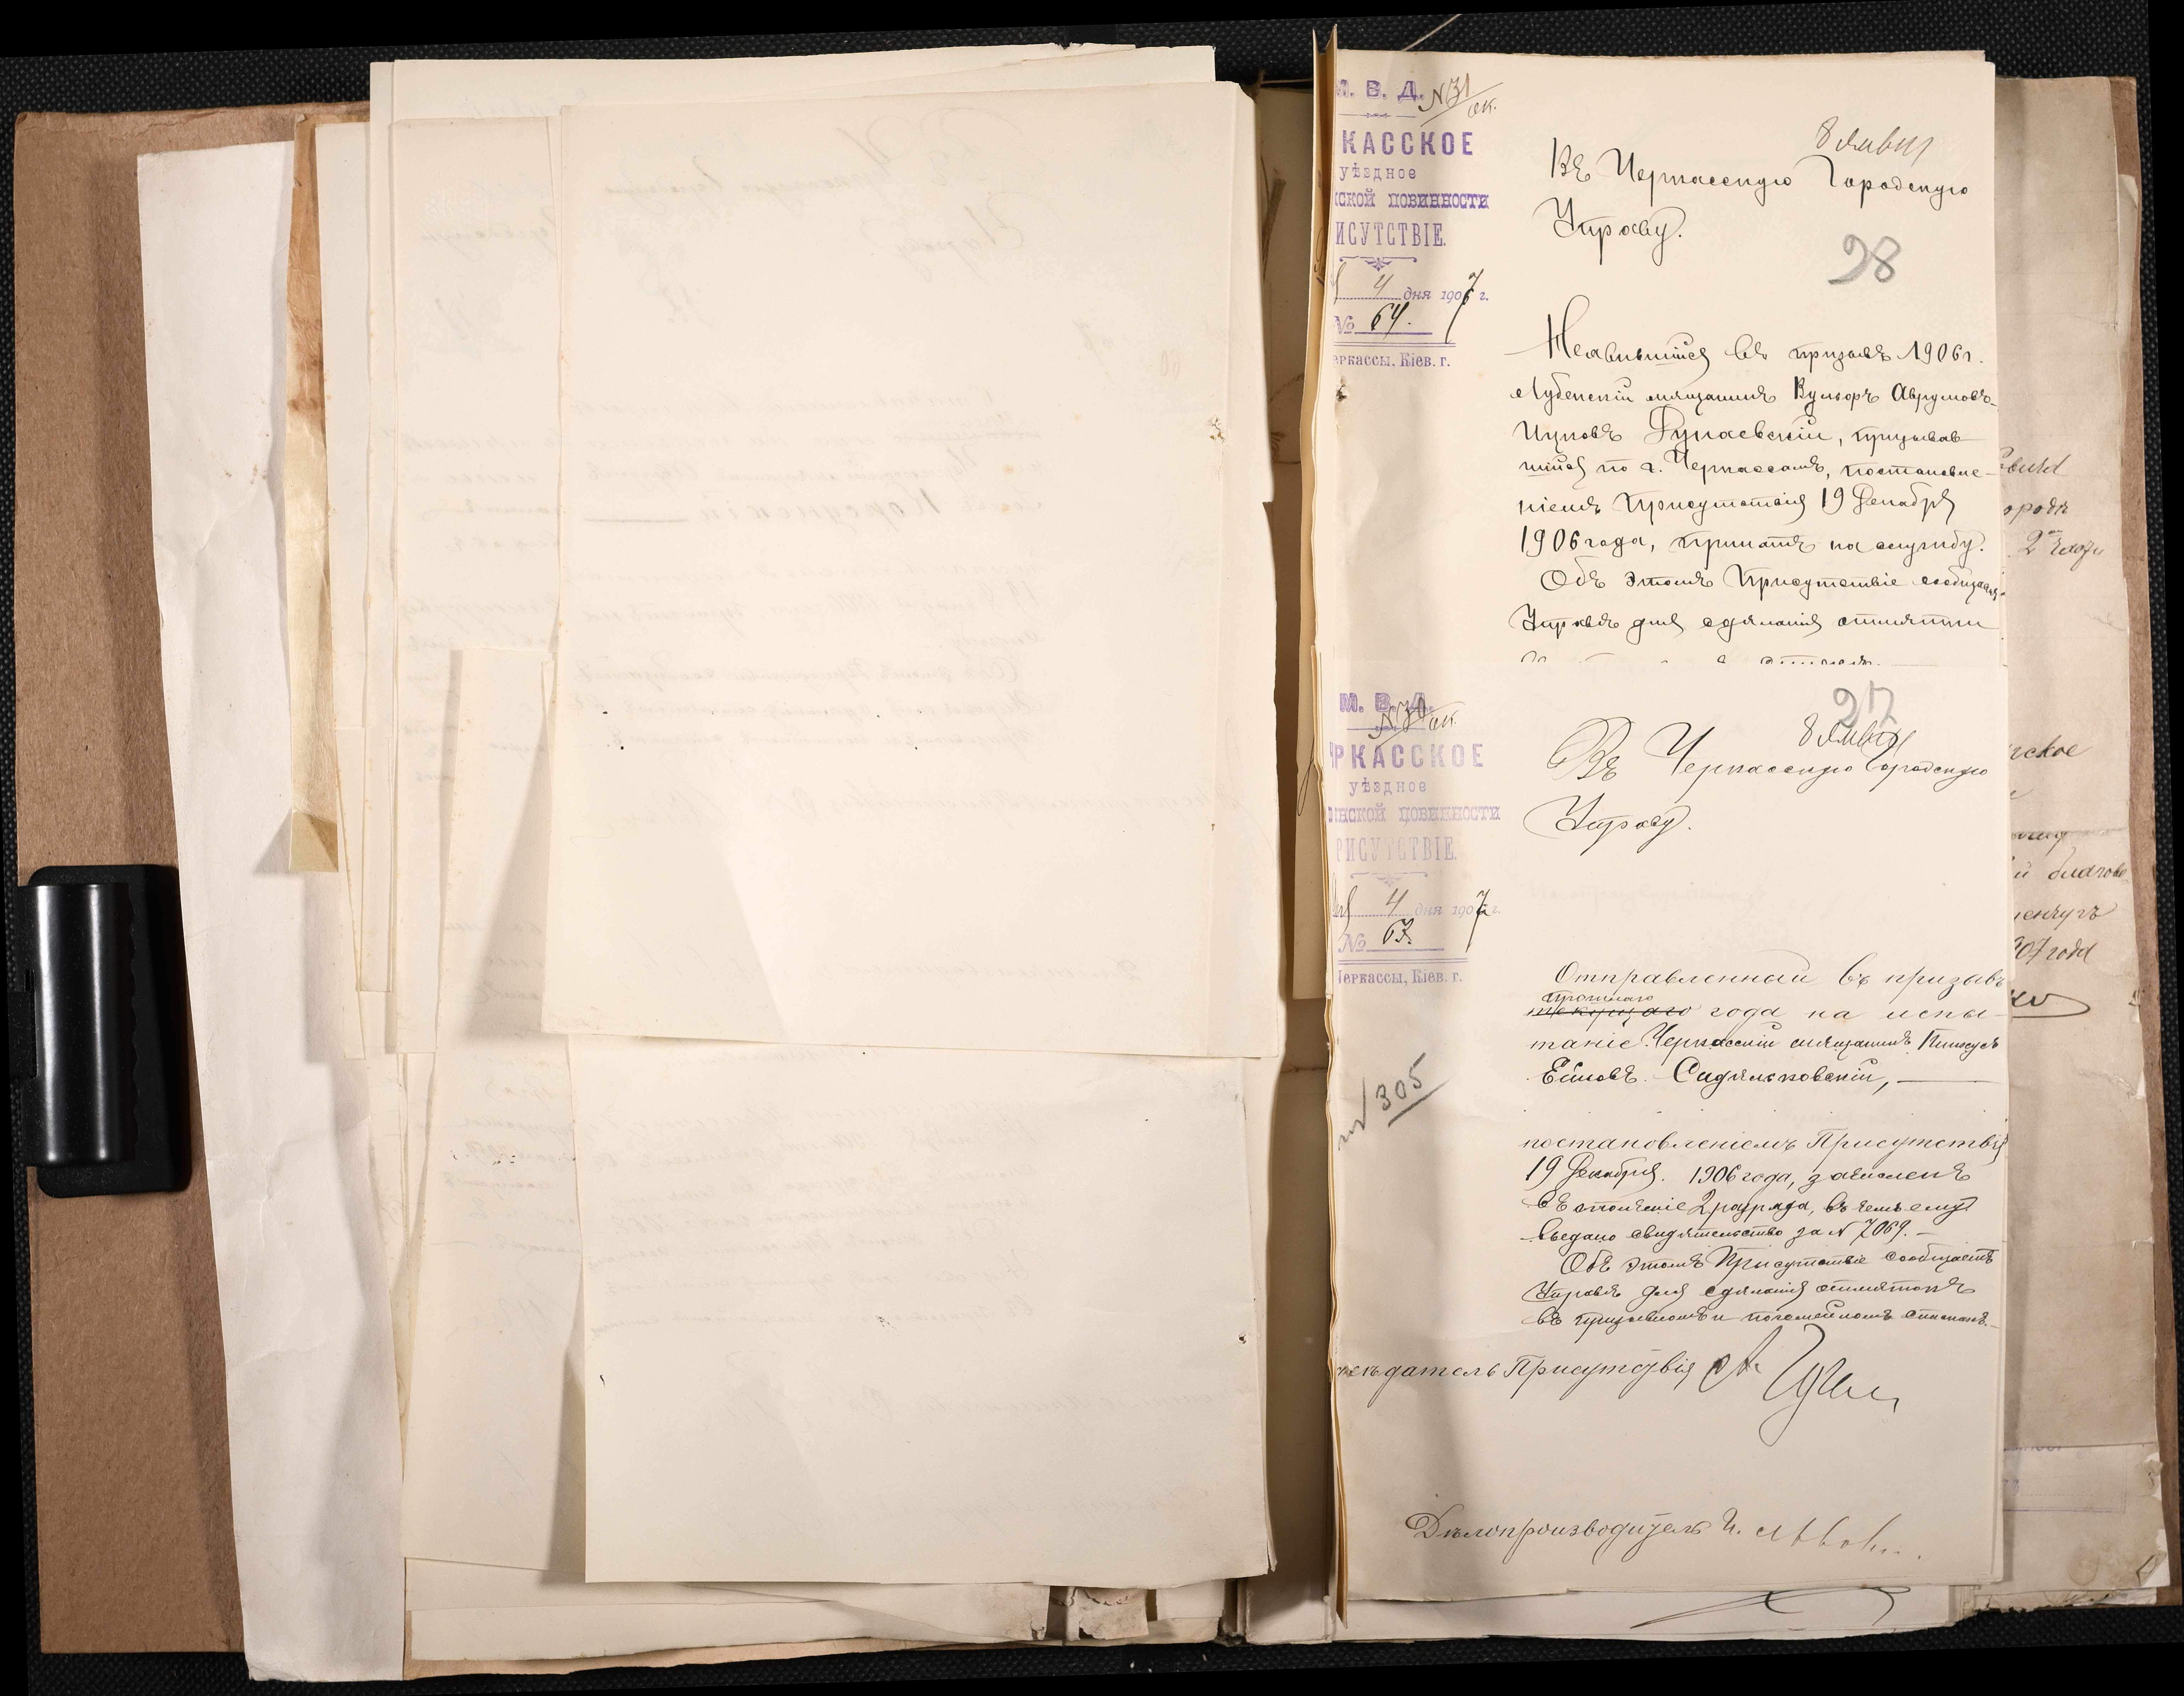 М. В. Д. N 31 ок.
КАССКОЕ
уѣздное
ской повинности
ИСУТСТВІЕ.
4 дня 1907 г.
№ 64.
еркассы, Кіев. г.
8 Январ
Въ Черкасскую Городскую
Управу.
98
Неявившійся въ призывъ 1906 г.
Лубенскій мѣщанинъ Вульфъ Аврумовъ-
Ицковъ Дунаевскій, призывав
шійся по г. Черкассамъ, постановле-
ніемъ Присутствія 19 Декабря
1906 года, принятъ на службу.
Объ этомъ Присутствіе сообщаетъ
Управѣ для сдѣланія отмѣтки
М. В. Д.
N 30 ок.
РКАССКОЕ
уѣздное
инской повинности
РИСУТСТВІЕ.
4 дня 1907 г.
№ 63.
Черкассы, Кіев. г.
97
8 Январ
Въ Черкасскую Городскую
Управу.
305
Отправленный въ призывъ
прошлаго
текущаго года на испы-
таніе Черкасскій мѣщанинъ Пинхусъ
Ейновъ Садыковскій,
постановленіемъ Присутствія
19 Декабря 1906 года, зачисленъ
въ ополченіе 2 разряда, въ чемъ ему
выдано свидѣтельство за N 7069.
Объ этомъ Присутствіе сообщаетъ
Управѣ для сдѣланія отмѣтокъ
въ призывномъ и посемейномъ спискахъ.
едсѣдатель Присутствія А.
Дѣлопроизводитель И. Львов
ородъ
ское
й благово
менчугъ
907 года